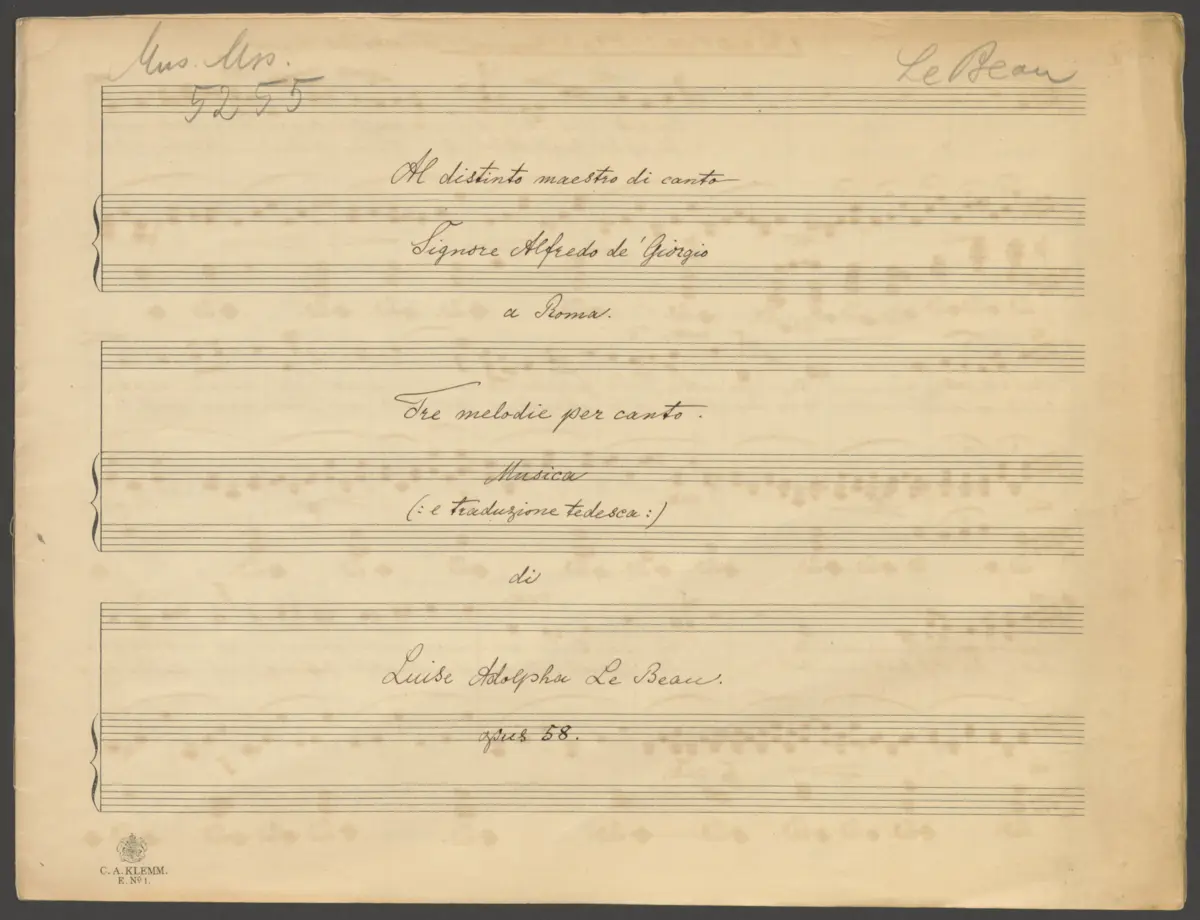 Mus. Mss.
5255
Le Beau
Al distinto maestro di canto
Signore Alfredo de' Giorgio
a Roma.
Tre melodie per canto.
Musica
(: e traduzione tedesca :)
di
Luise Adolpha Le Beau.
opus 58.
C. A. KLEMM.
E. Nº 1.